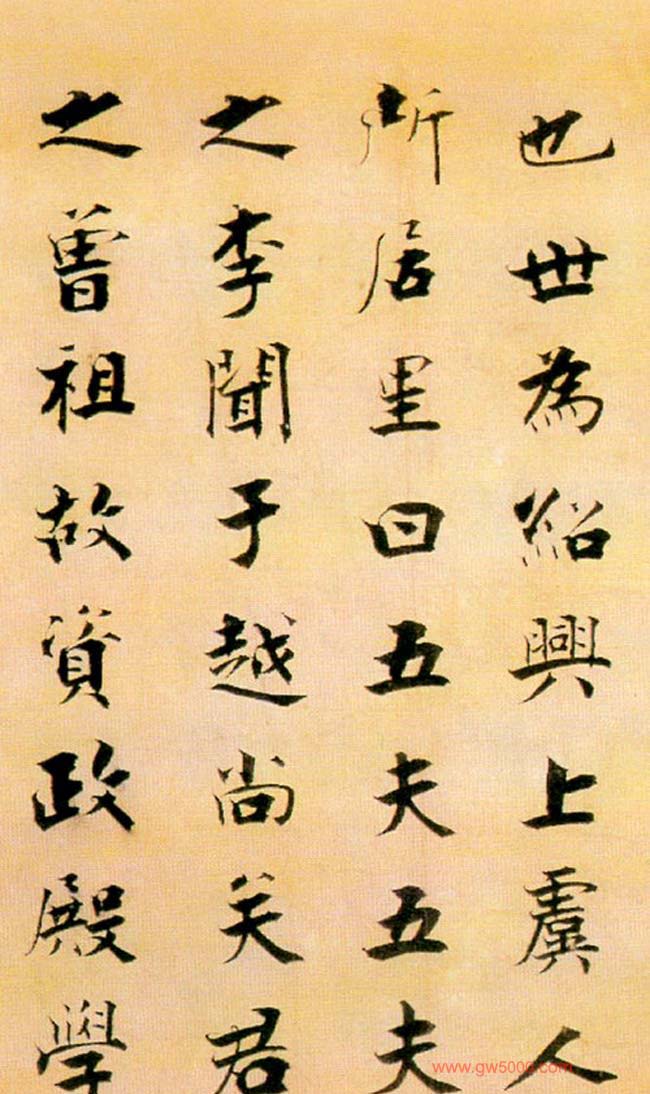 也世為紹興上虞人
所居里曰五夫五夫
之李聞于越尚矣君
之曾祖故資政殿學
www.gw5000.com